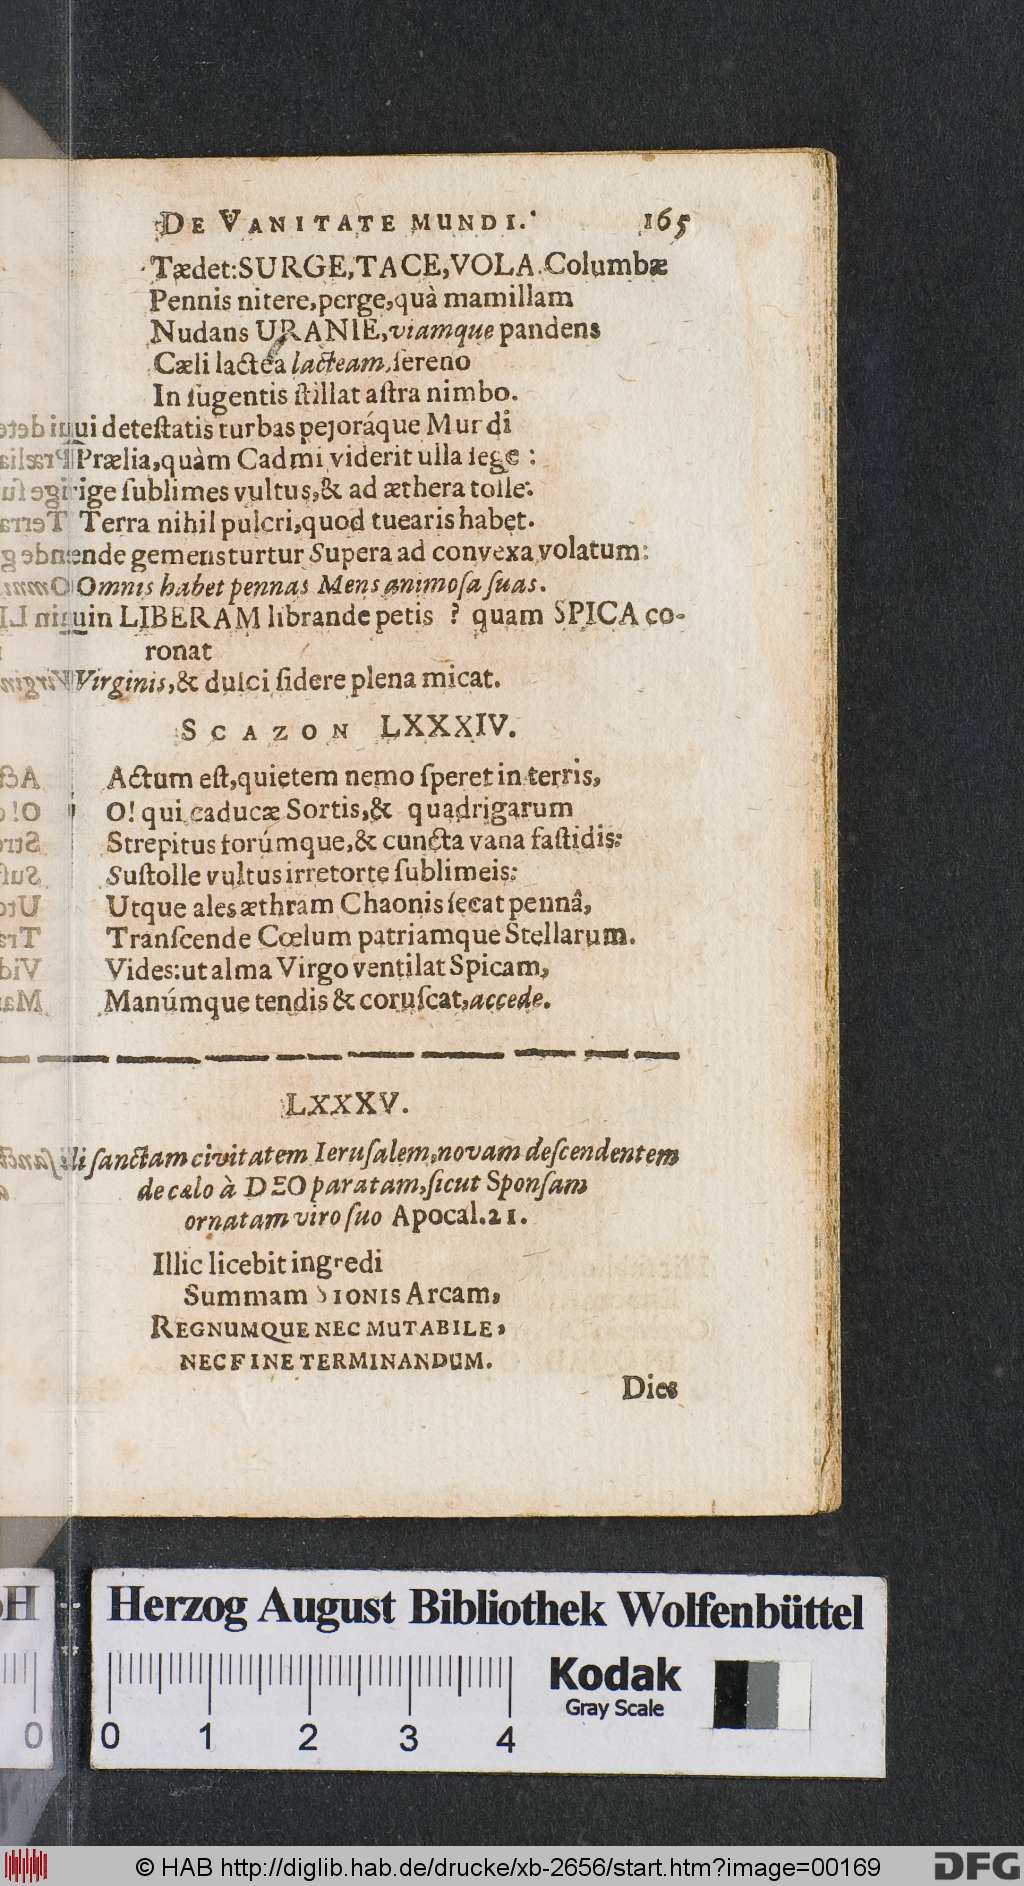 DE VANITATE MUNDI. 165
Tædet: SURGE, TACE, VOLA. Columbæ
Pennis nitere, perge, quà mamillam
Nudans URANIE, viamque pandens
Cæli lactea lacteam, ſereno
In ſugentis ſtillat aſtra nimbo.
ui deteſtatis turbas pejoráque Mundi
Prælia, quàm Cadmi viderit ulla ſege :
ige ſublimes vultus, & ad æthera tolle:
Terra nihil pulcri, quod tuearis habet.
ende gemens turtur Supera ad convexa volatum:
Omnis habet pennas Mens animoſa ſuas.
uin LIBERAM librande petis ? quam SPICA co-
ronat
Virginis, & dulci ſidere plena micat.
SCAZON LXXXIV.
Actum eſt, quietem nemo ſperet in terris,
O! qui caducæ Sortis, & quadrigarum
Strepitus forúmque, & cuncta vana faſtidis:
Suſtolle vultus irretorte ſublimeis:
Utque ales æthram Chaonis ſecat pennâ,
Tranſcende Cœlum patriamque Stellarum.
Vides: ut alma Virgo ventilat Spicam,
Manúmque tendis & coruſcat, accede.
LXXXV.
di ſanctam civitatem Ieruſalem, novam deſcendentem
de cælo à DEO paratam, ſicut Sponſam
ornatam viro ſuo Apocal. 21.
Illic licebit ingredi
Summam SIONIS Arcam,
REGNUMQUE NEC MUTABILE,
NEC FINE TERMINANDUM.
Dies
Herzog August Bibliothek Wolfenbüttel
Kodak
Gray Scale
0 0 1 2 3 4
© HAB http://diglib.hab.de/drucke/xb-2656/start.htm?image=00169
DFG